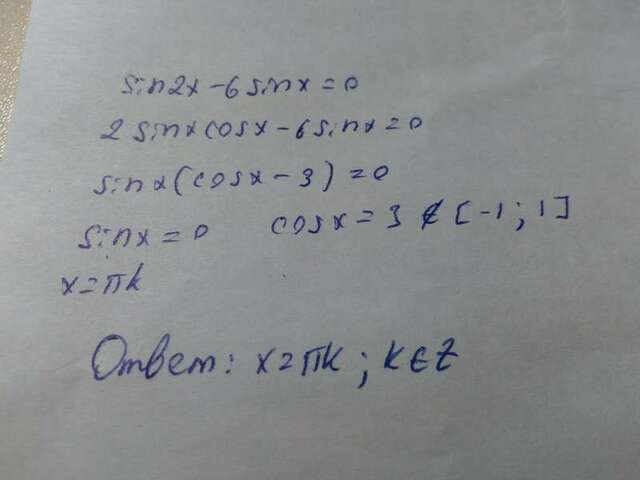 sin2x-6sinx=0
2sinxcosx-6sinx=0
sinx(cosx-3)=0
sinx=0 cosx=3∉[-1;1]
x=πk
Ответ: x=πk; k∈Z